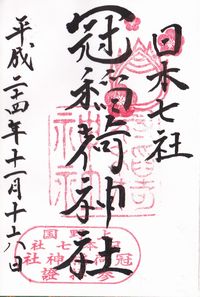 日本七社
冠稲荷神社
平成二十四年十一月十八日
上野国
日本七社
冠稲荷神社
参拝證